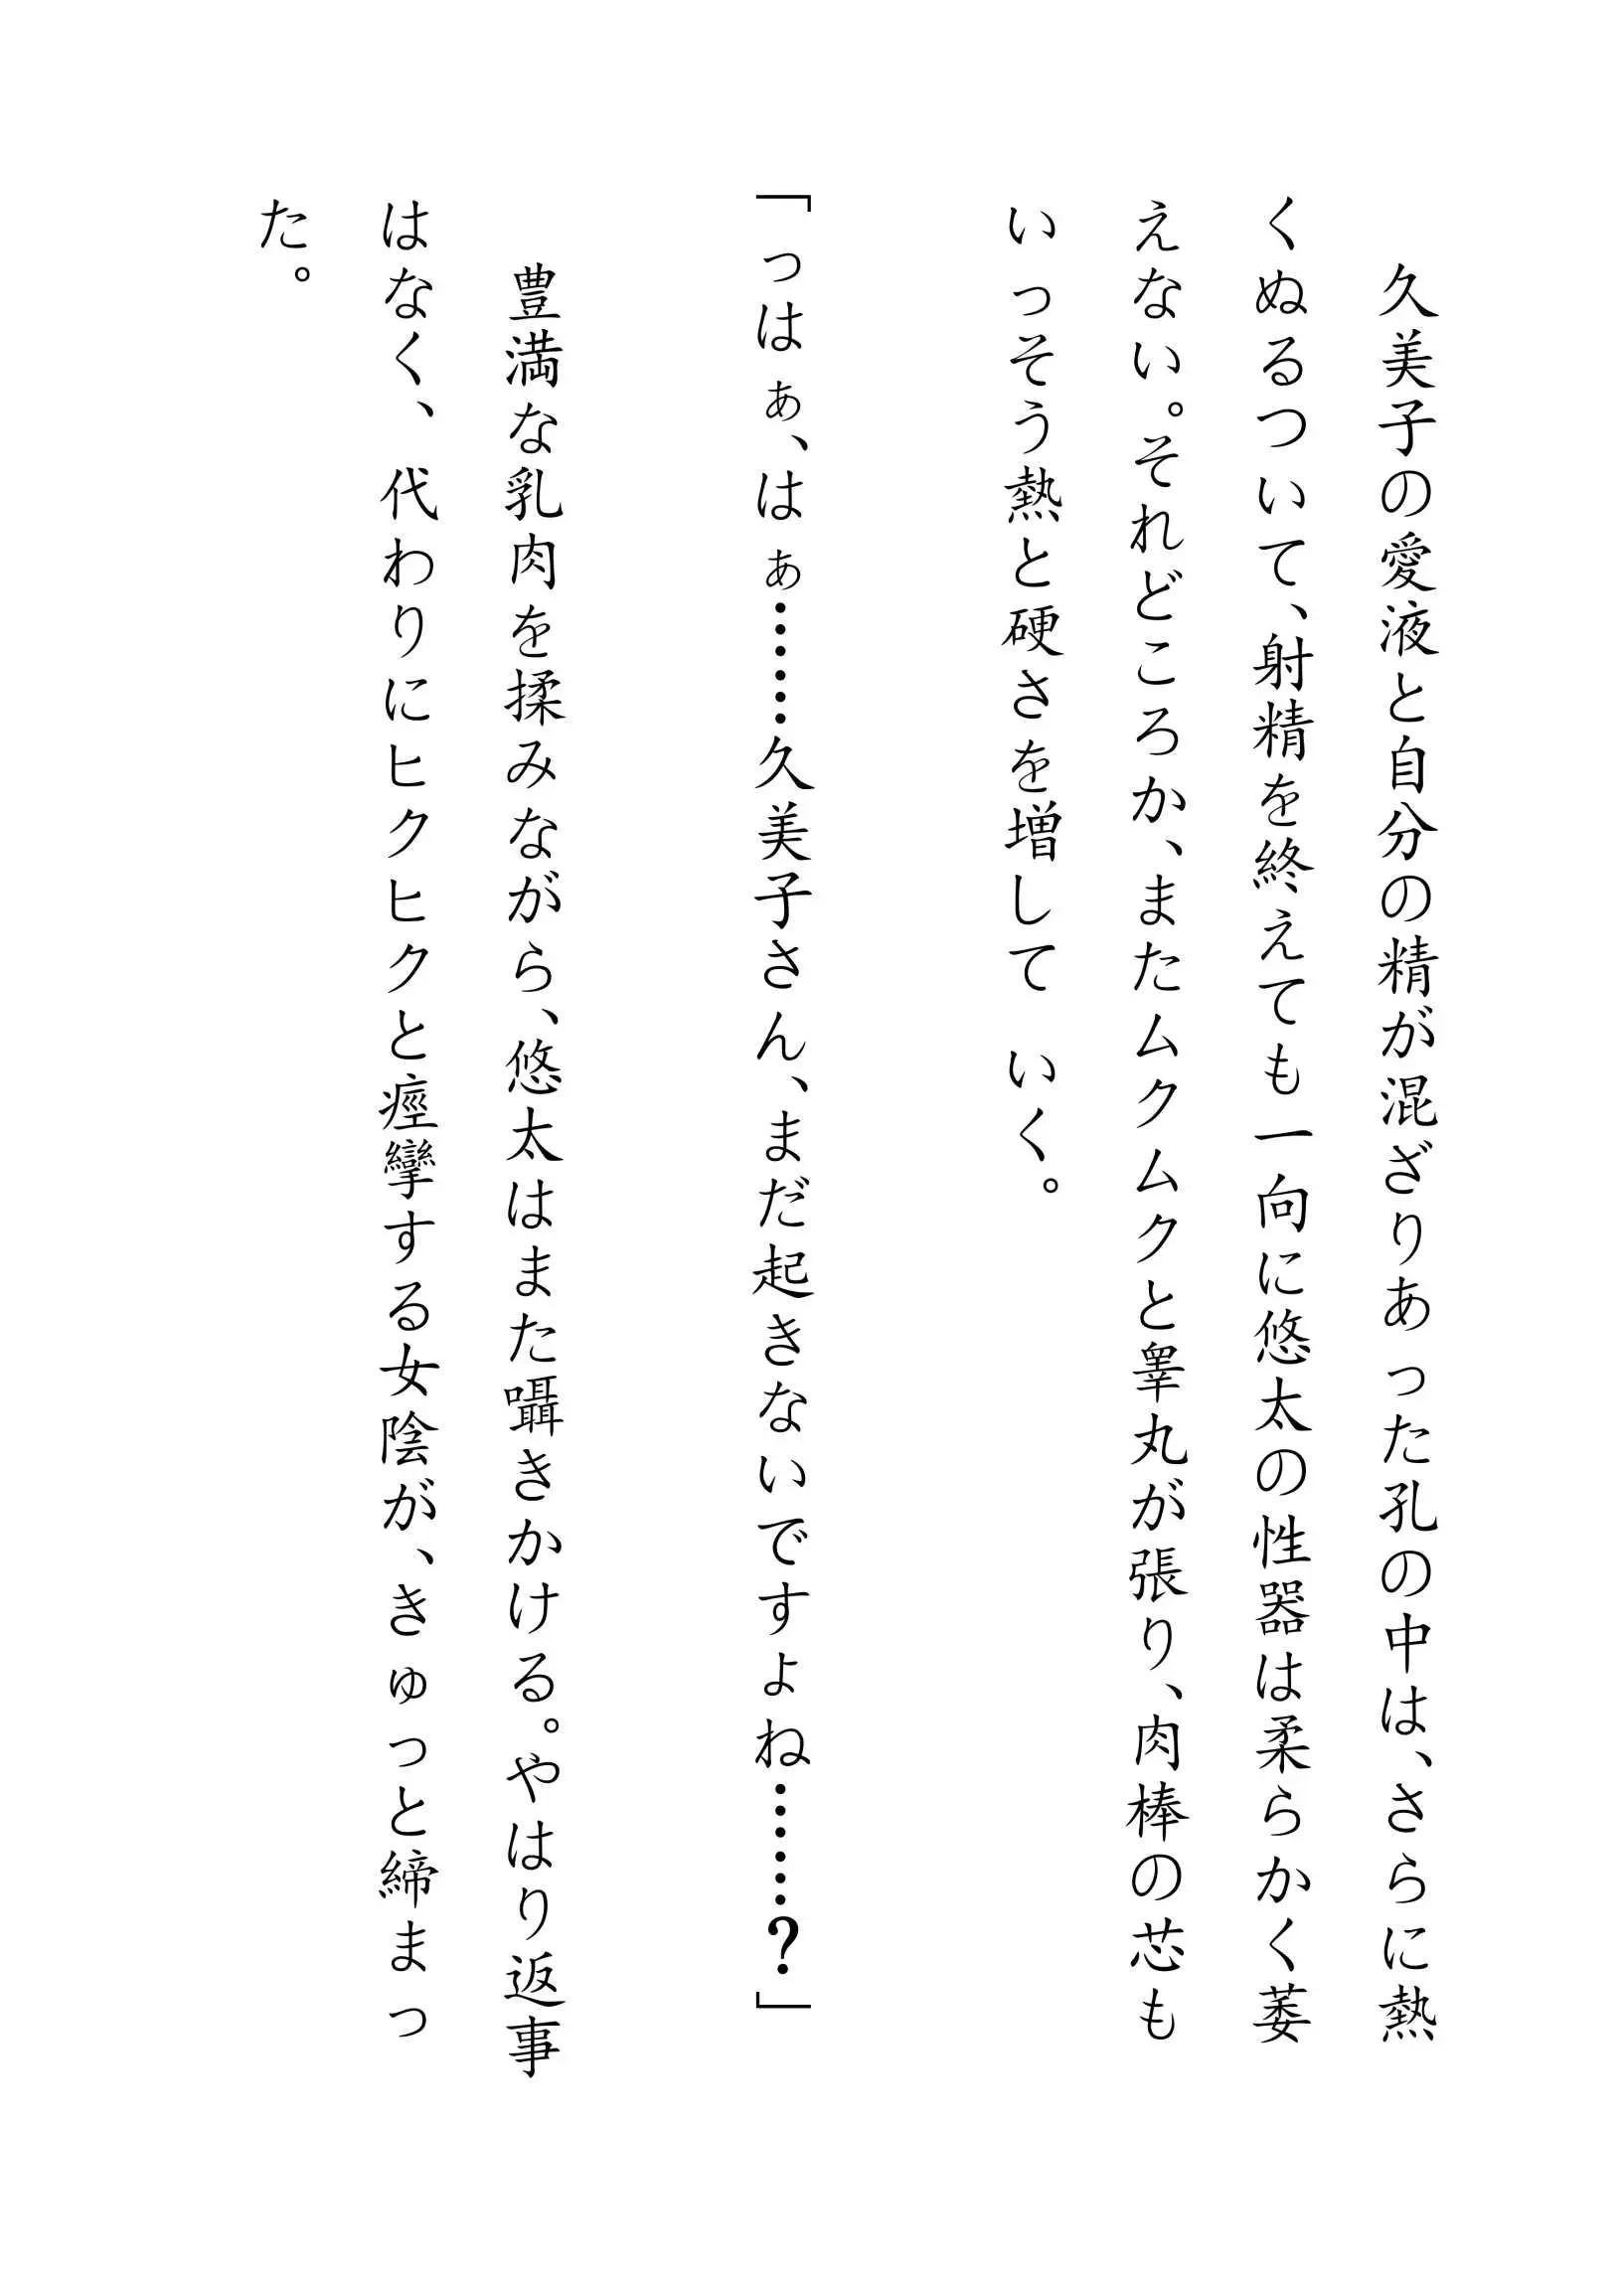 久美子の愛液と自分の精が混ざりあった孔の中は、さらに熱
くぬるついて、射精を終えても一向に悠太の性器は柔らかく萎
えない。それどころか、またムクムクと睾丸が張り、肉棒の芯も
いっそう熱と硬さを増していく。
「っはぁ、はぁ……久美子さん、まだ起きないですよね……？」
豊満な乳肉を揉みながら、悠太はまた囁きかける。やはり返事
はなく、代わりにヒクヒクと痙攣する女陰が、きゅっと締まっ
た。